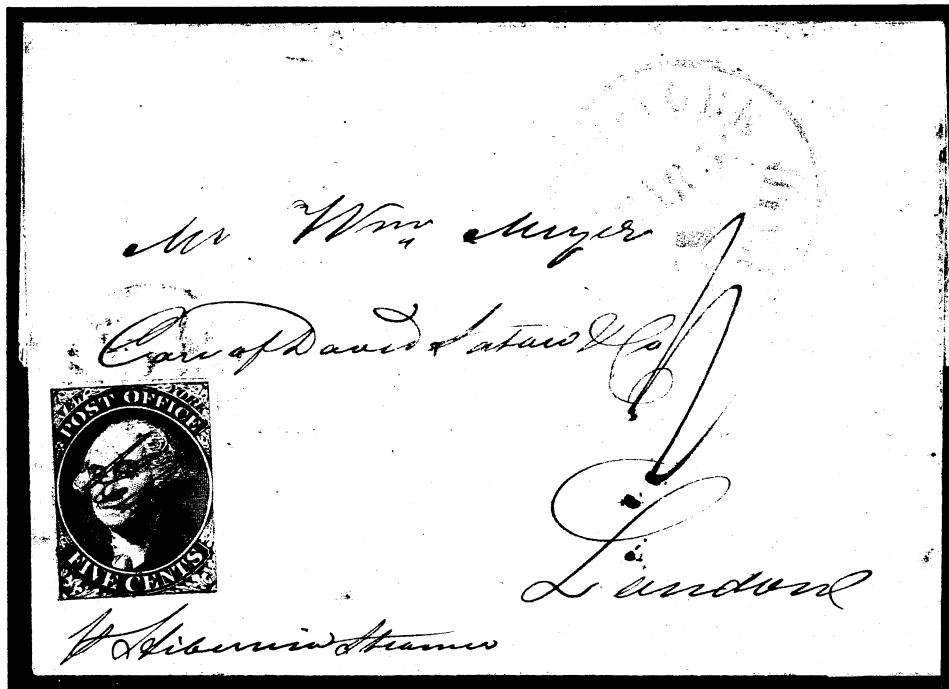 Mr Wm Meyer
Care of David Sataw & Co
NEW YORK
POST OFFICE
FIVE CENTS
London
p Hibernia Steamer